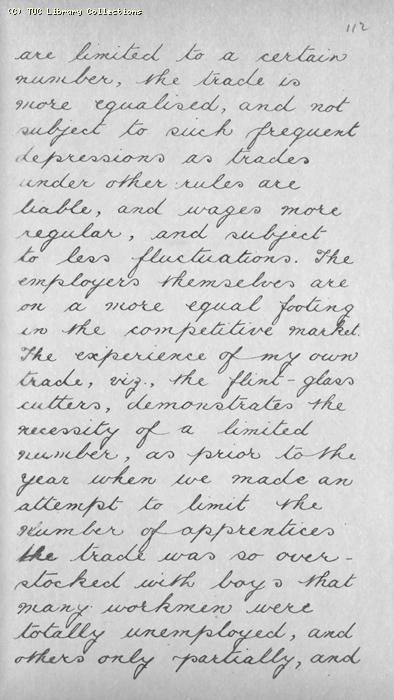 (C) TUC Library Collections
112
are limited to a certain
number, the trade is
more equalised, and not
subject to such frequent
depressions as trades
under other rules are
liable, and wages more
regular, and subject
to less fluctuations. The
employers themselves are
on a more equal footing
in the competitive market.
The experience of my own
trade, viz., the flint-glass
cutters, demonstrates the
necessity of a limited
number, as prior to the
year when we made an
attempt to limit the
number of apprentices
the trade was so over-
stocked with boys that
many workmen were
totally unemployed, and
others only partially, and